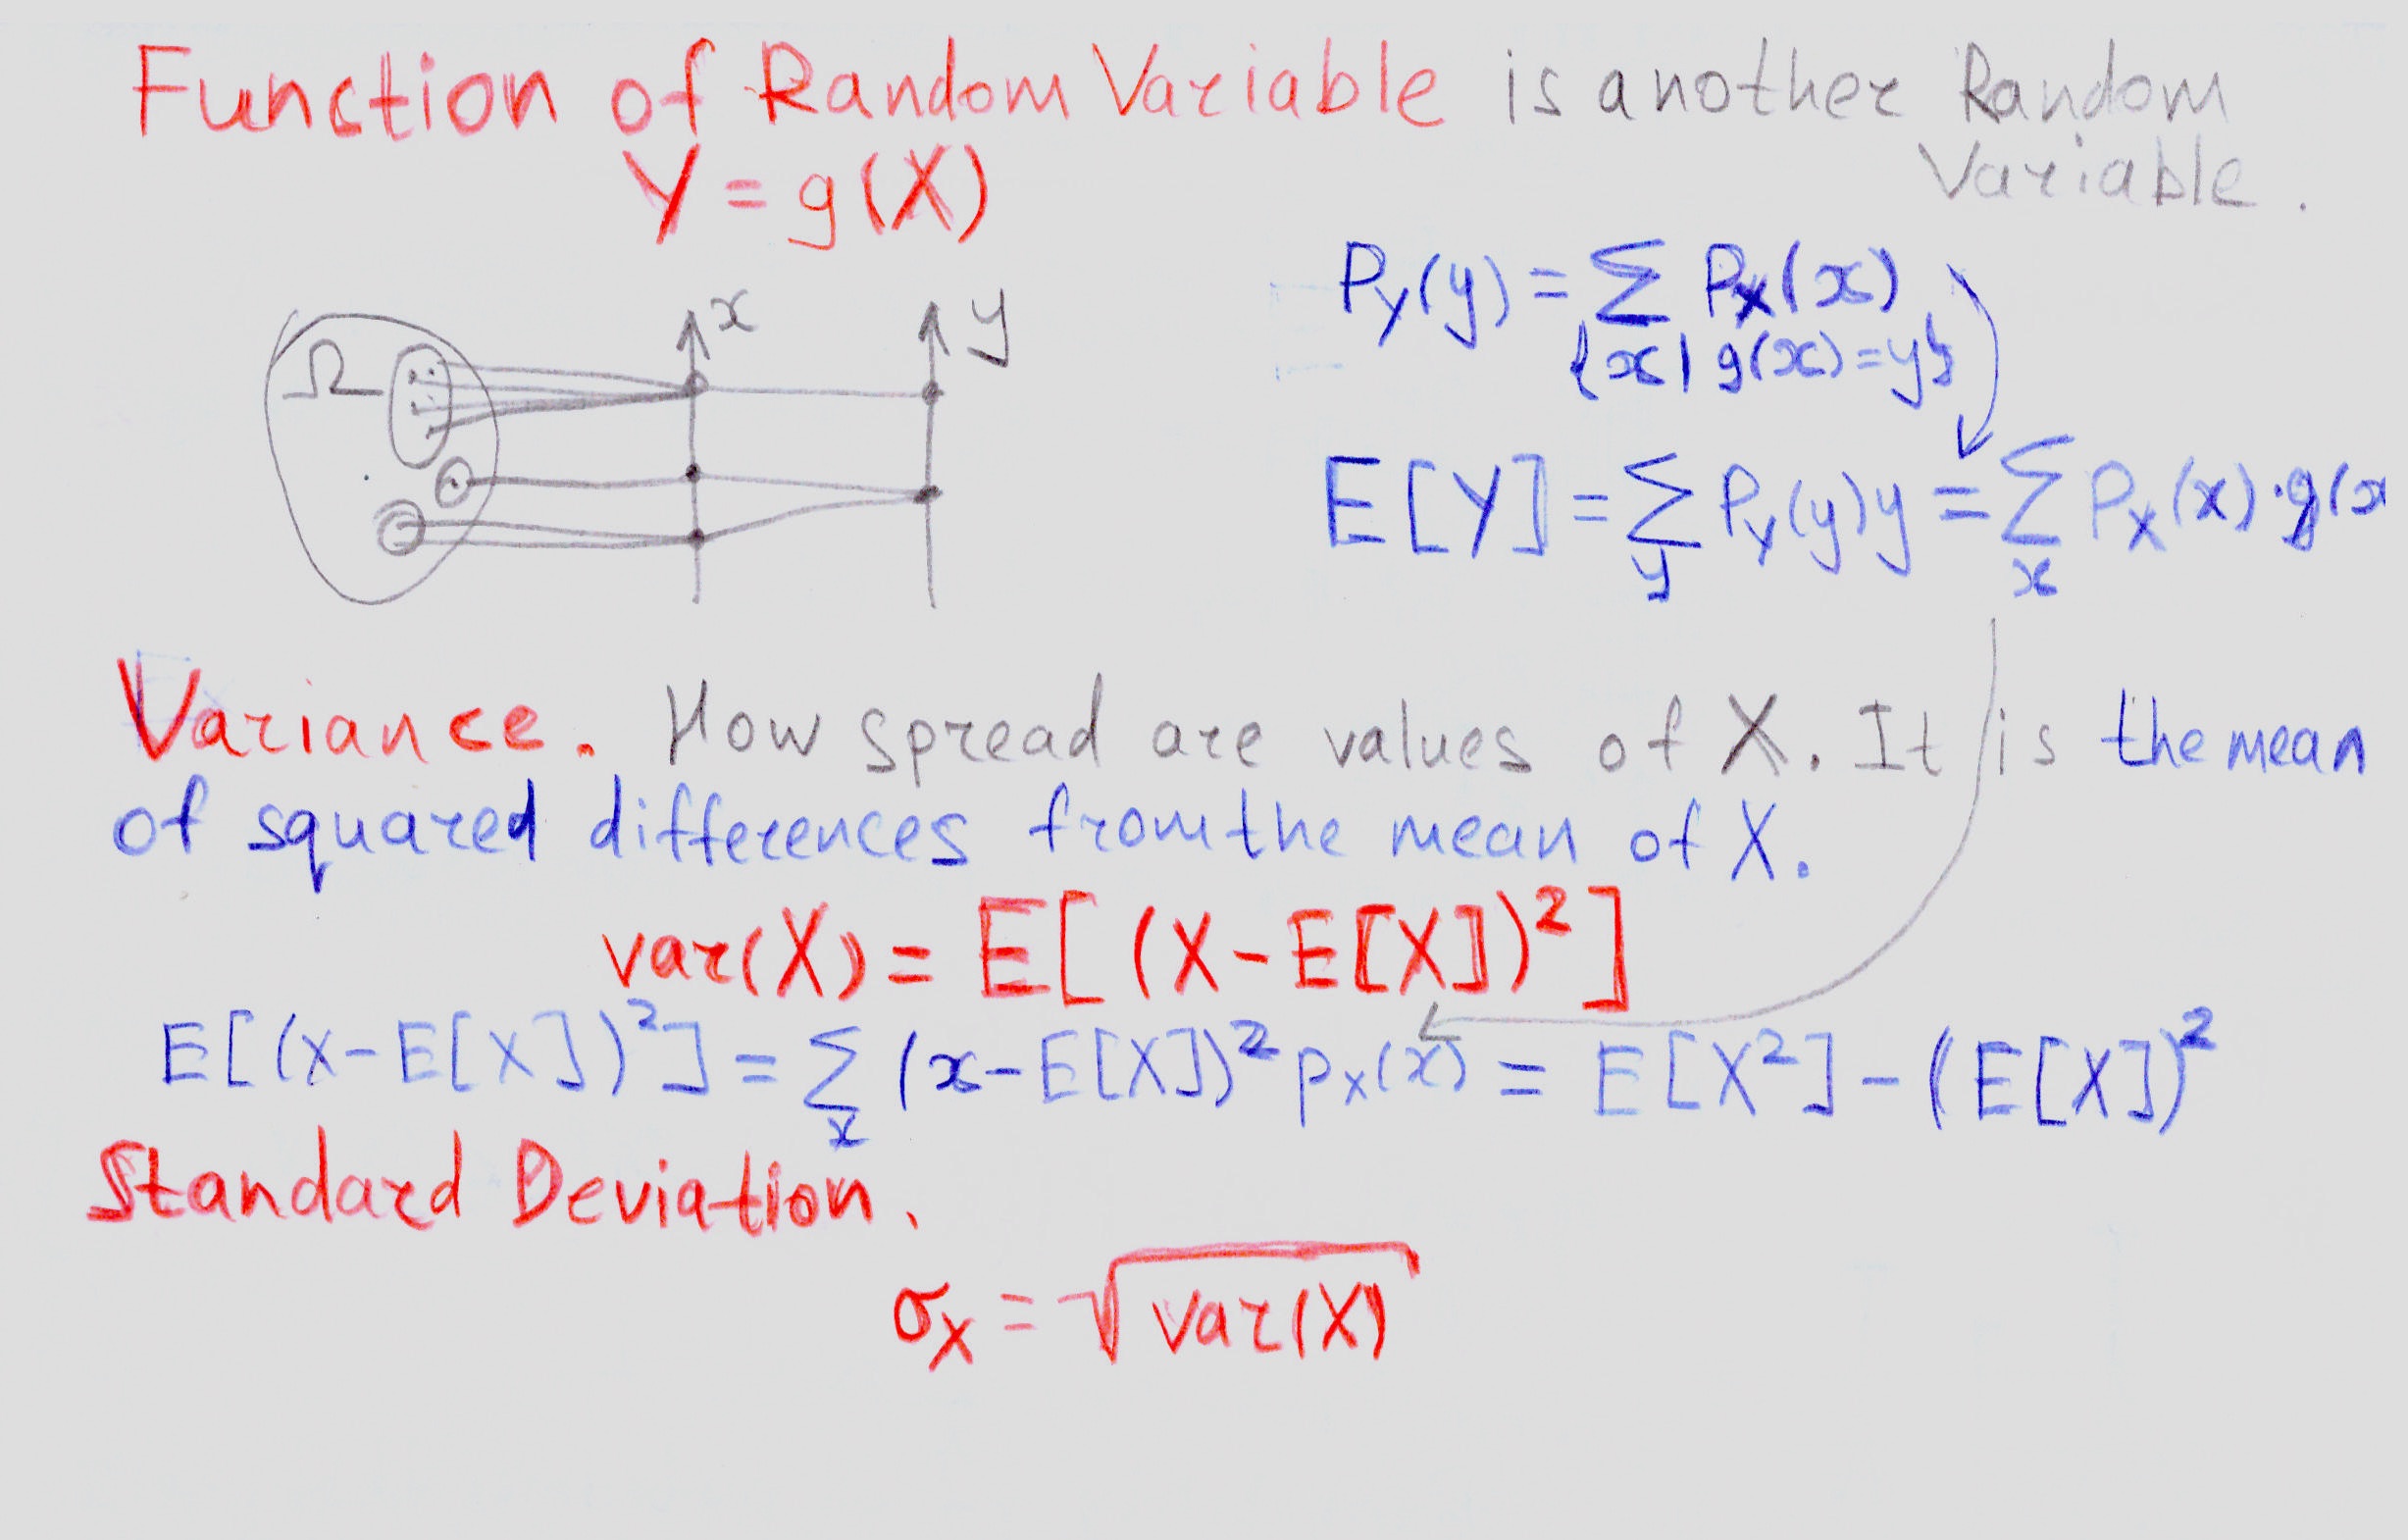 Function of Random Variable is another Random
Variable.
Y = g(X)
P_Y(y) = ∑ P_X(x)
{x | g(x)=y}
x y
Ω
E[Y] = ∑ P_Y(y)y = ∑ P_X(x)·g(x
y x
Variance. How spread are values of X. It is the mean
of squared differences from the mean of X.
var(X) = E[(X-E[X])²]
E[(X-E[X])²] = ∑ (x-E[X])² p_X(x) = E[X²] - (E[X])²
x
Standard Deviation.
σ_X = √var(X)